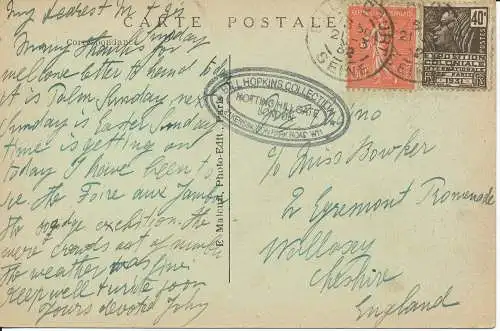 My dearest M +
CARTE POSTALE
Correspondance
Sunday
Many thanks for
welcome letter to hand to day
it is Palm Sunday next
Sunday is Easter Sunday
time is getting on
today I have been to
see the Foire aux Jambons
the
were crowds out of number
the weather was fine.
Keep well & write soon
Yours devoted John
E. Malcuit, Photo-Edit., Paris
BILL HOPKINS COLLECTION
NOTTING HILL GATE
LONDON
KENSINGTON PARK ROAD W11
40c
1931
c/o Miss Bowker
2 Egremont Promenade
Wallasey
Cheshire
England